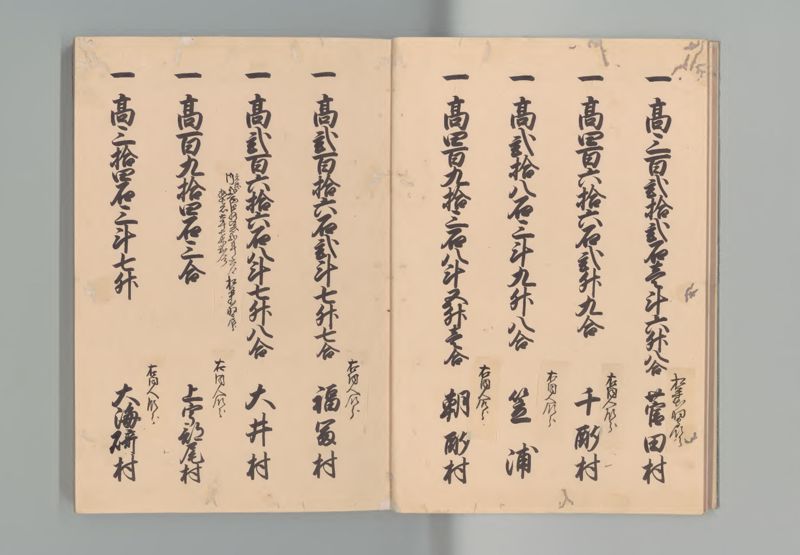 一 高三百弐拾弐石壱斗六升八合 菅田村
一 高四百六拾六石弐升九合 千酌村
右同人領分
一 高弐拾八石三斗九升八合 笠浦
右同人領分
一 高四百九拾三石八斗五升壱合 朝酌村
右同人領分
一 高弐百拾六石弐斗七升七合 福冨村
右同人領分
一 高弐百六拾六石八斗七升八合 大井村
一 高百九拾四石三合 上宇部尾村
右同人領分
一 高三拾四石三斗七升 大海崎村
右同人領分